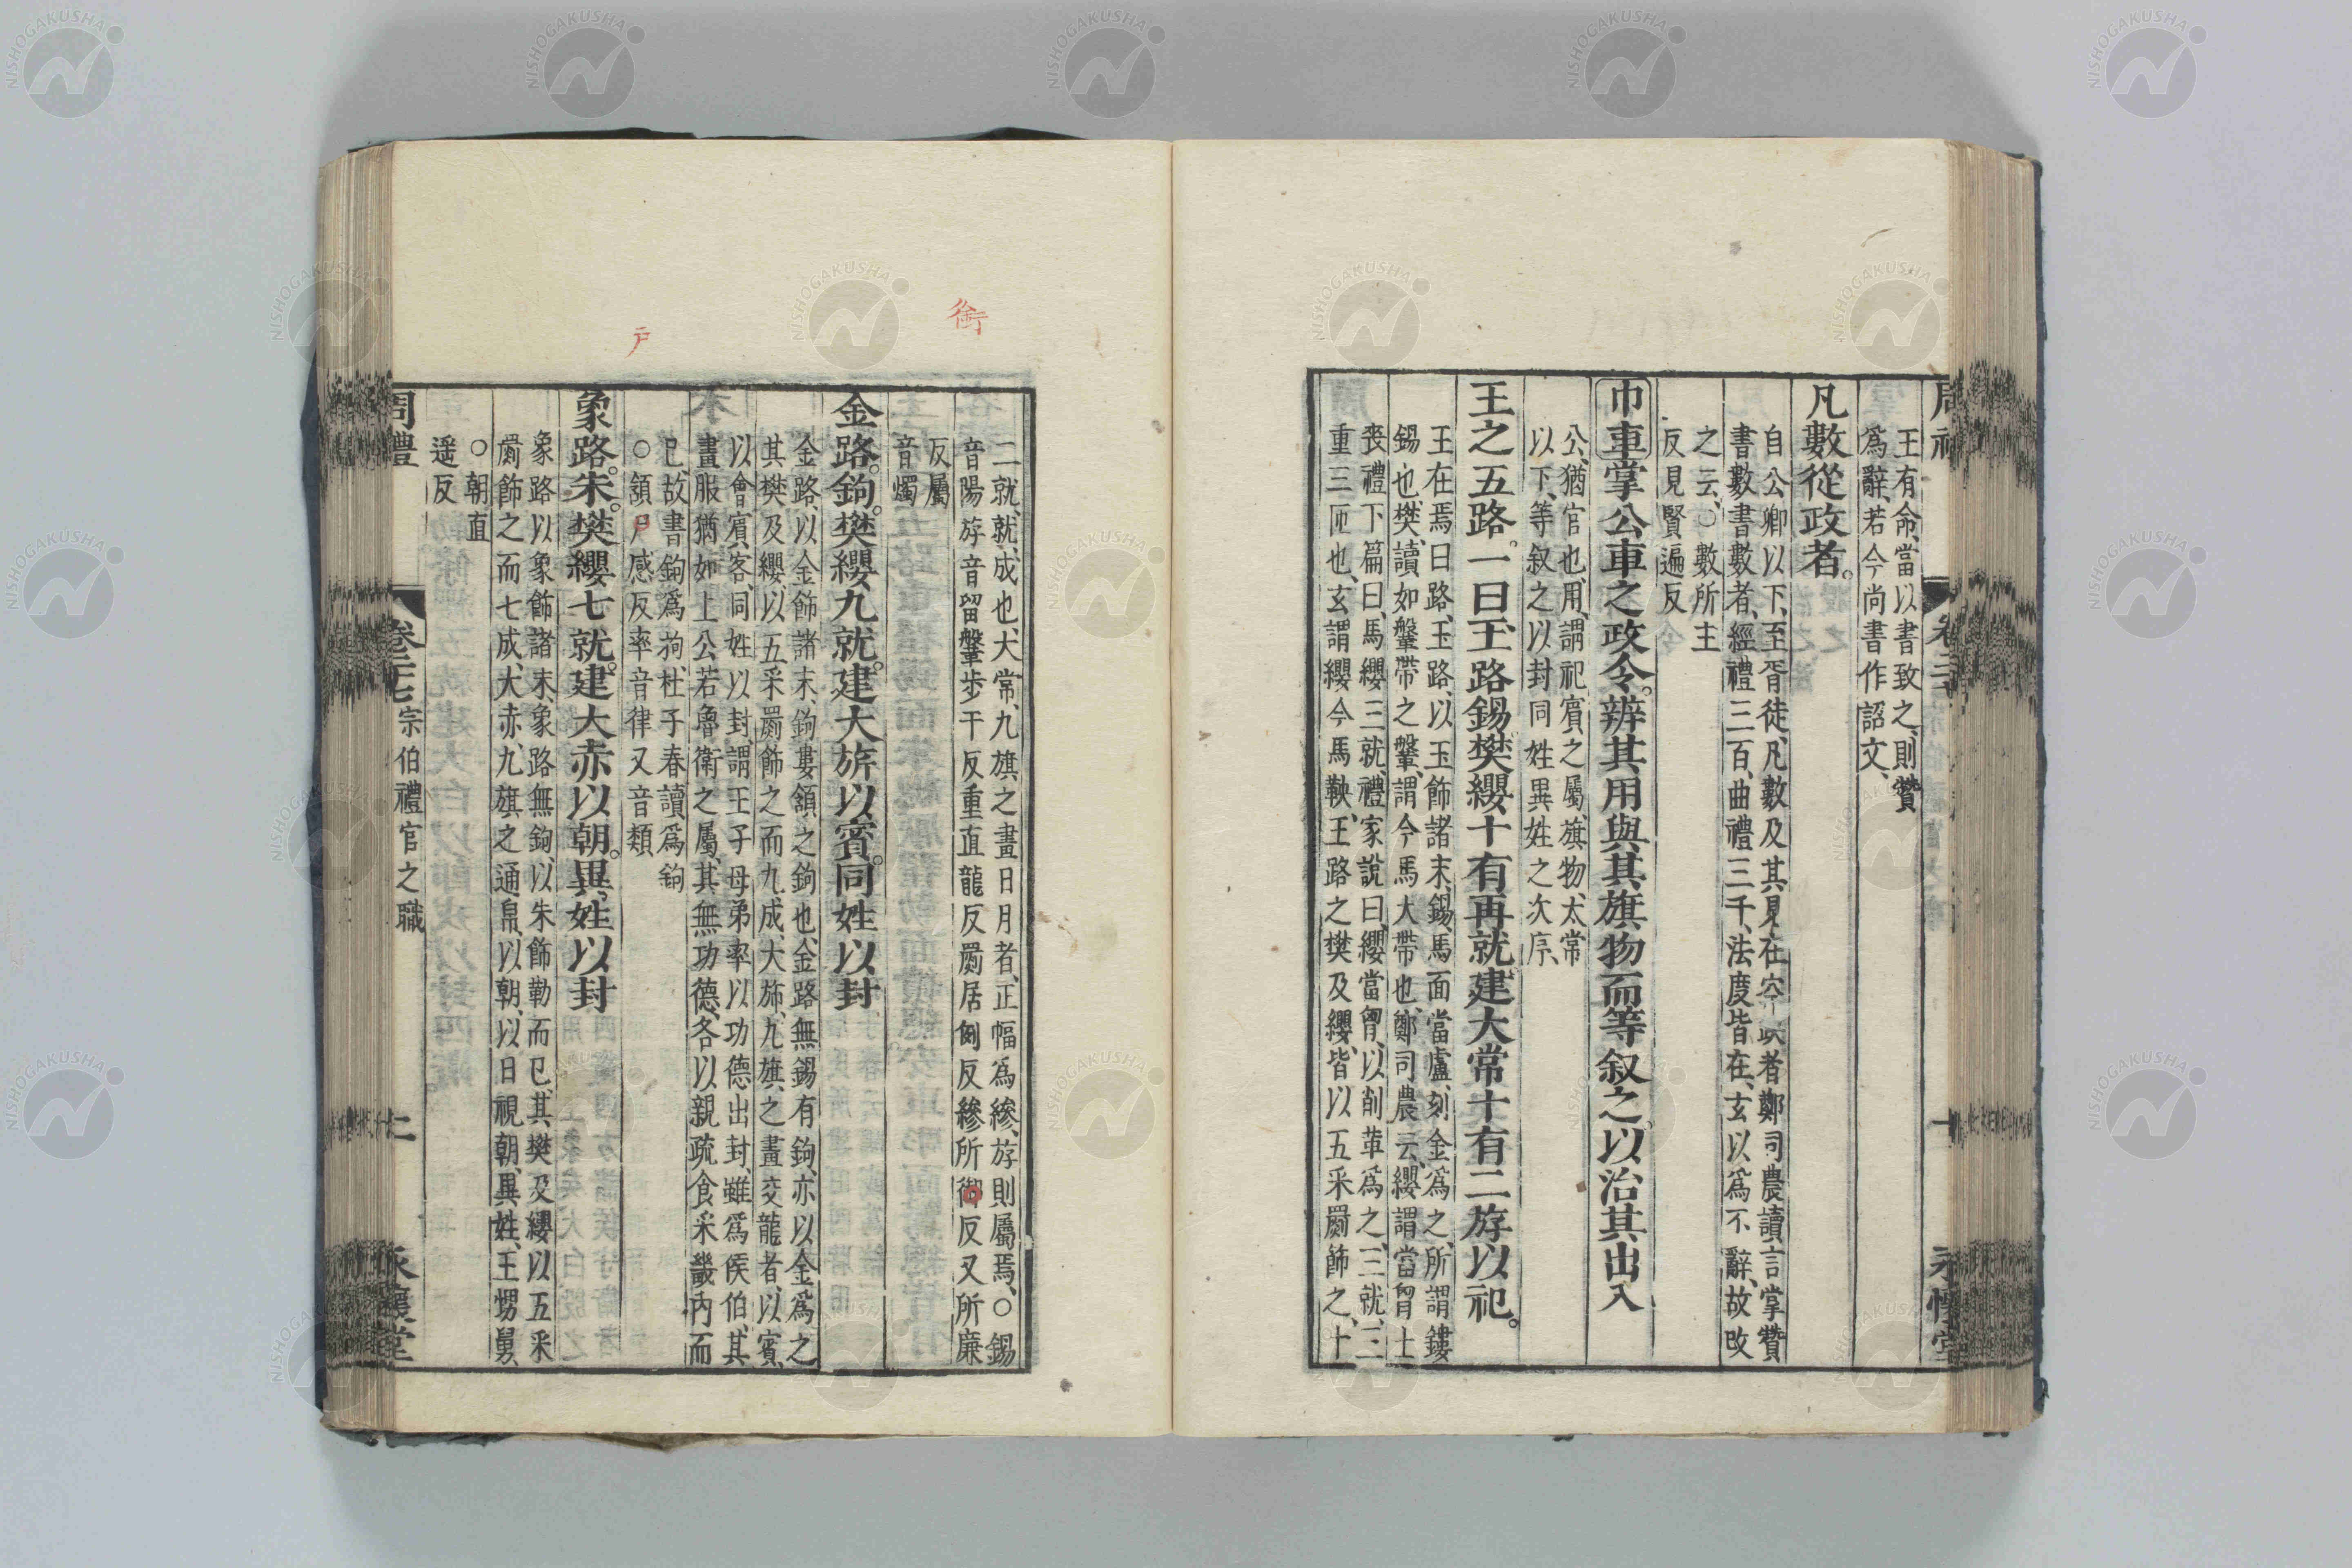 王有命、當以書致之、則贊
爲辭、若今尚書作詔文、
凡數從政者。
自公卿以下、至胥徒、凡數及其見在空缺者、鄭司農讀言掌贊
書數、書數者、經禮三百、曲禮三千、法度皆在、玄以爲不辭、故改
之云、○數所主
反見賢遍反
巾車掌公車之政令。辨其用與其旗物而等叙之。以治其出入
公、猶官也、用、謂祀賓之屬、旗物、太常
以下、等叙之以封同姓異姓之次序、
王之五路。一曰玉路錫樊纓十有再就建大常十有二斿以祀。
王在焉曰路、玉路、以玉飾諸末、錫、馬面當盧、刻金爲之、所謂鏤
錫也、樊、讀如鞶帶之鞶、謂今馬大帶也、鄭司農云、纓謂當胷、士
喪禮下篇曰、馬纓三就、禮家說曰、纓當胷、以削革爲之、三就、三
重三匝也、玄謂纓今馬鞅、王路之樊及纓、皆以五采罽飾之、十
二就、就、成也、大常、九旗之畫日月者、正幅爲縿、斿則屬焉、○錫
音陽斿音留鞶步干反重直龍反罽居例反縿所御反又所廉
反屬
音燭
金路。鉤。樊纓九就。建大旂以賓。同姓以封
金路、以金飾諸末、鉤婁頷之鉤也、金路無錫有鉤、亦以金爲之
其樊及纓以五采罽飾之而九成、大旂、九旗之畫交龍者、以賓、
以會賓客、同姓以封、謂王子母弟率以功德出封、雖爲侯伯、其
畫服猶如上公若魯衛之屬、其無功德、各以親疏食采畿内而
已、故書鉤爲䩱、杜子春讀爲鉤
○頷尸感反率音律又音類
象路。朱。樊纓七就。建大赤以朝。異姓以封
象路以象飾諸末、象路無鉤、以朱飾勒而已、其樊及纓以五采
罽飾之而七成、大赤、九旗之通帛、以朝、以日視朝、異姓、王甥舅、
○朝直
遥反
周禮
卷二十七 宗伯禮官之職
十一
永懷堂
衘
戸
NISHOGAKUSHA